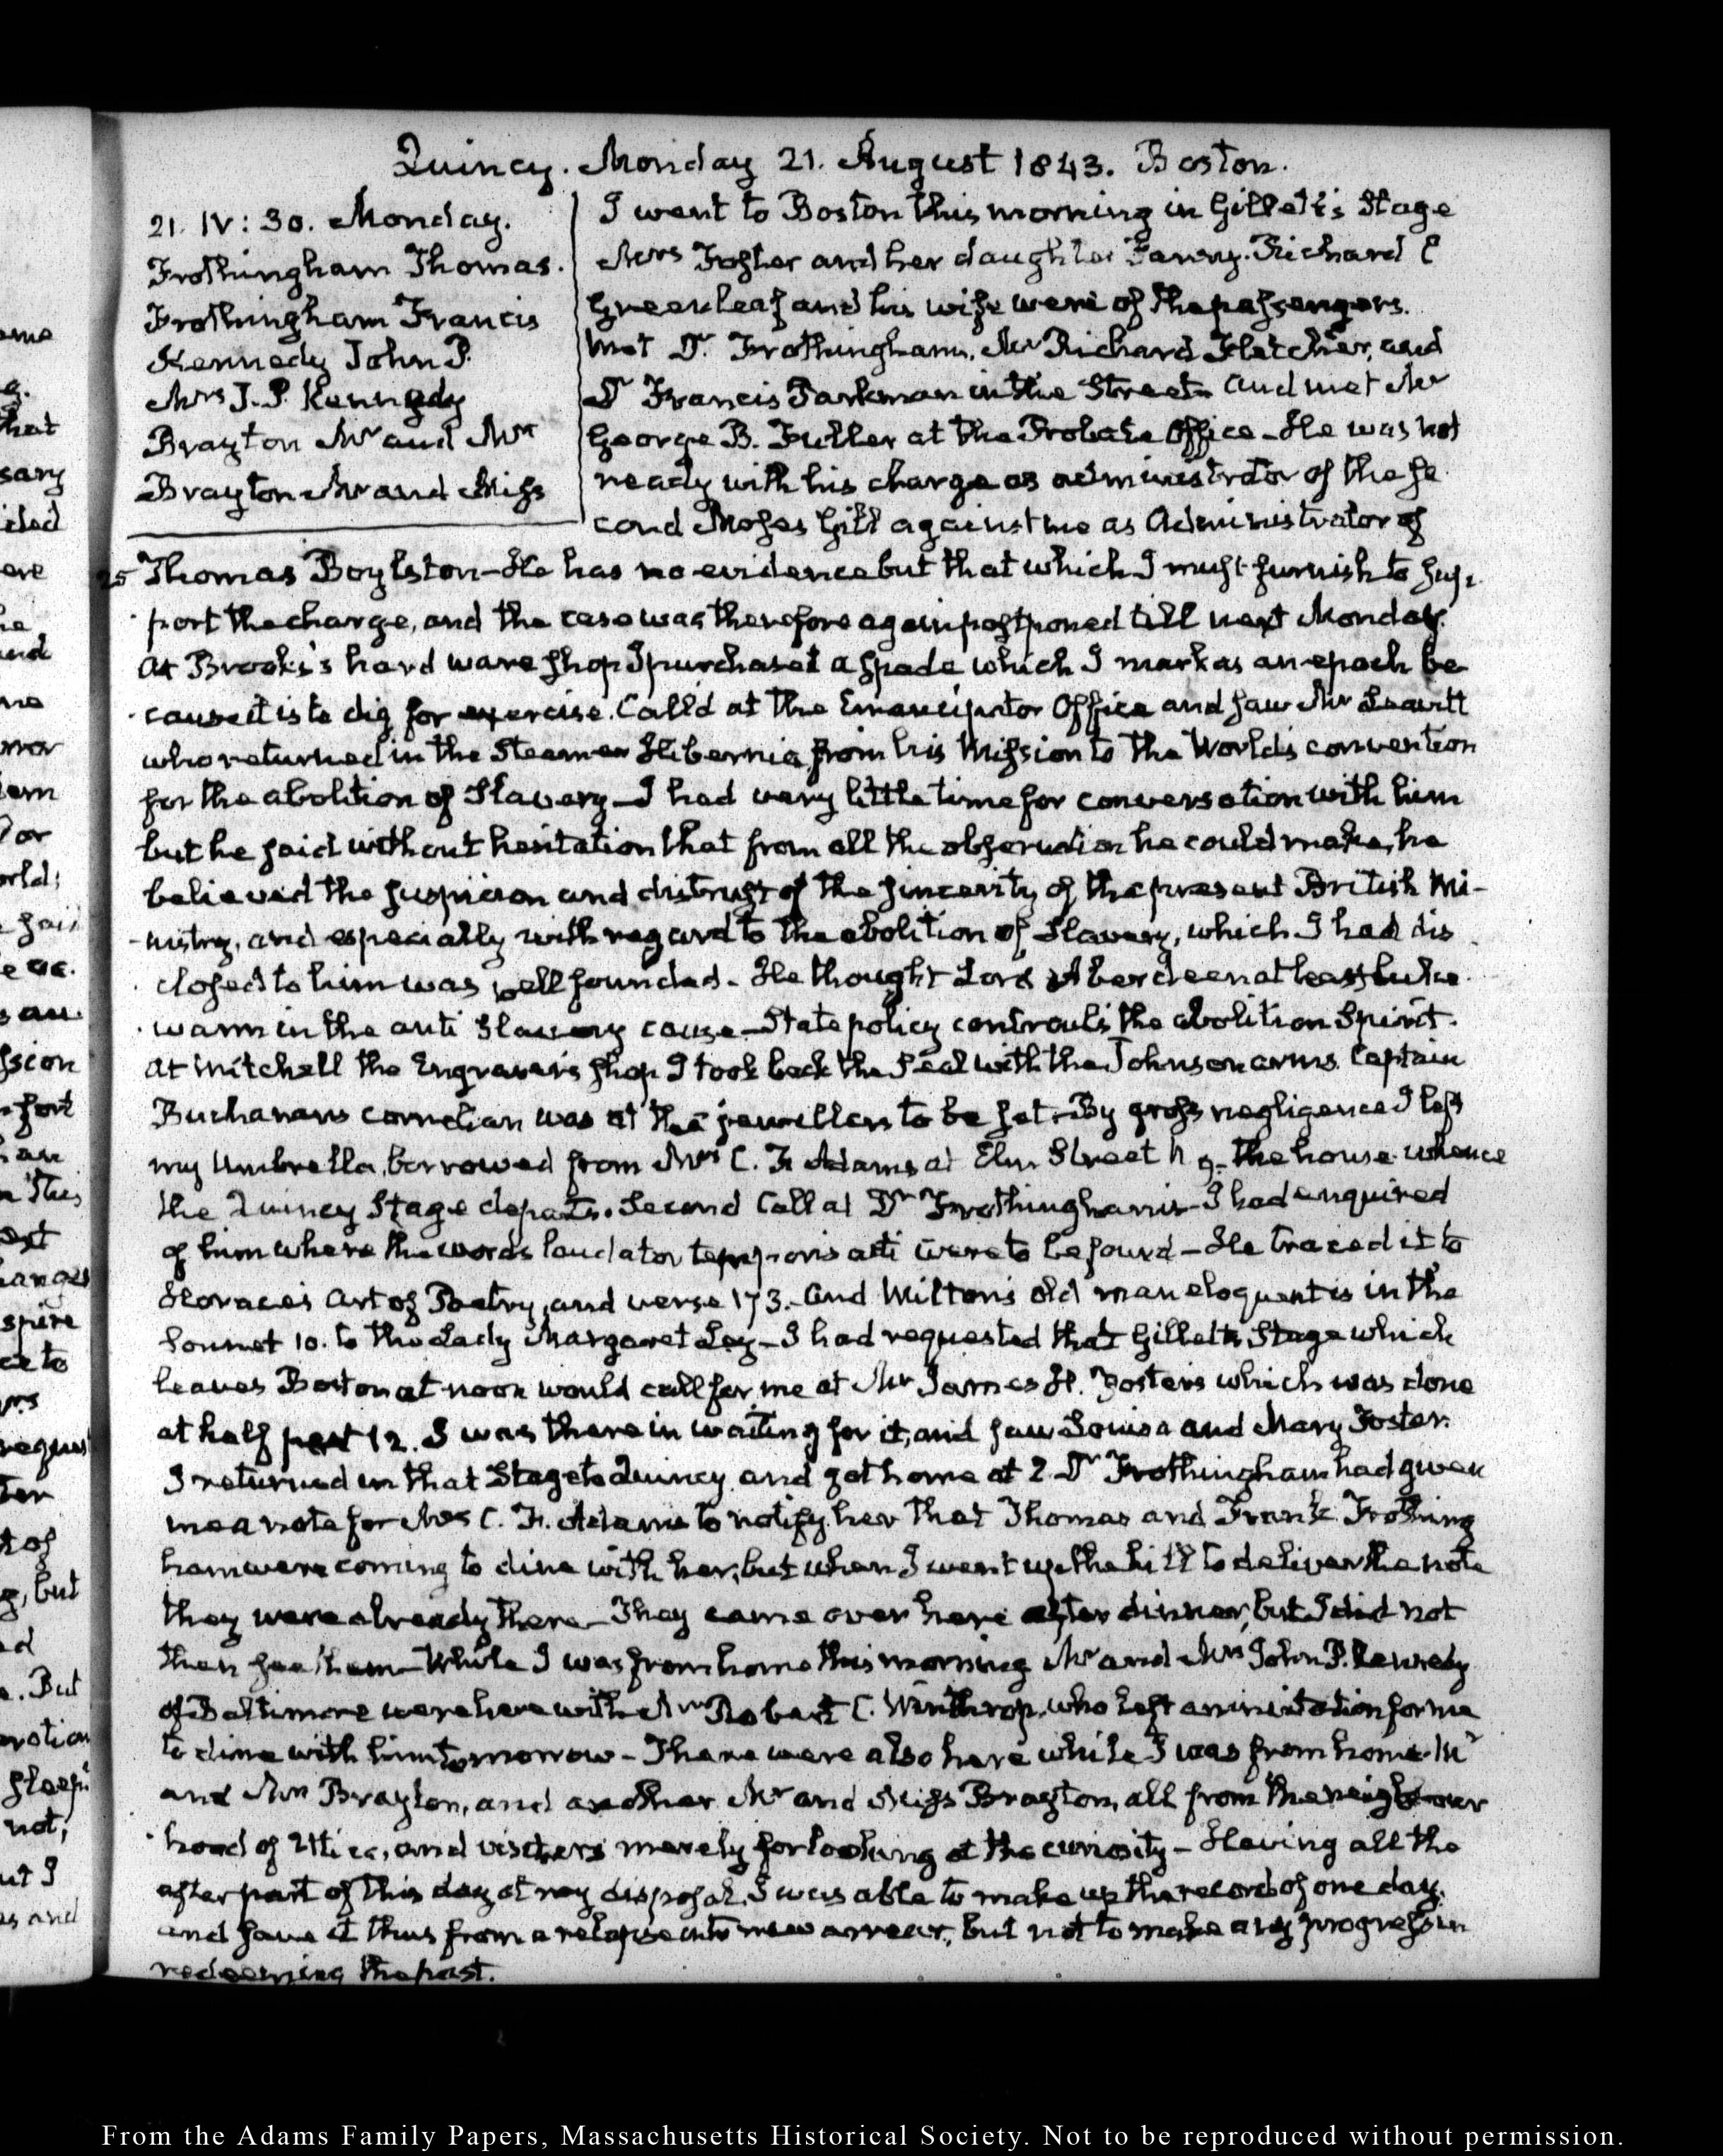 Quincy. Monday 21. August 1843. Boston.
21. IV: 30. Monday.
Frothingham Thomas.
Frothingham Francis
Kennedy John P.
Mrs J. P. Kennedy
Brayton Mr and Mrs
Brayton Mr and Miss
I went to Boston this morning in Gillett's Stage
Mrs Foster and her daughter Fanny. Richard C
Greenleaf and his wife were of the passengers.
Met Dr. Frothingham, Mr Richard Fletcher, and
Dr Francis Parkman in the Street and met Mr
George B. Fuller at the Probate Office - He was not
ready with his charge as administrator of the se
cond Moses Gill against me as Administrator of
25 Thomas Boylston - He has no evidence but that which I must furnish to sup-
port the charge, and the case was therefore again postponed till next Monday.
At Brooks's hard ware shop I purchased a spade which I mark as an epoch be
cause it is to dig for exercise. Call'd at the Emancipator Office and saw Mr Leavitt
who returned in the Steamer Hibernia from his Mission to the World's convention
for the abolition of Slavery - I had very little time for conversation with him
but he said without hesitation that from all the observation he could make, he
believed the suspicion and distrust of the sincerity of the present British Mi-
-nistry, and especially with regard to the abolition of Slavery, which I had dis
closed to him was well founded - He thought Lord Aberdeen at least luke
warm in the anti Slavery cause - State policy controuls the abolition Spirit.
At Mitchell the Engraver's shop I took back the Seal with the Johnson arms. Captain
Buchanans cornelian was at the jewellers to be set - By gross negligence I left
my Umbrella, borrowed from Mrs C. F. Adams at Elm Street N 9. the house whence
the Quincy Stage departs. Second Call at Dr Frothingham's - I had enquired
of him where the words laudator temporis acti were to be found - He traced it to
Horace's Art of Poetry, and verse 173. - And Milton's old man eloquent is in the
Sonnet 10. to the Lady Margaret Ley - I had requested that Gillett's Stage which
leaves Boston at noon would call for me at Mr James H. Foster's which was done
at half past 12. I was there in waiting for it, and saw Louisa and Mary Foster.
I returned in that Stage to Quincy and got home at 2. Dr Frothingham had given
me a note for Mrs C. F. Adams to notify her that Thomas and Frank Frothing
ham were coming to dine with her, but when I went up the hill to deliver the note
they were already there - They came over here after dinner, but I did not
then see them - While I was from home this morning Mr and Mrs John P. Kennedy
of Baltimore were here with Mr Robert C. Winthrop, who left an invitation for me
to dine with him tomorrow - There were also here while I was from home Mr
and Mrs Brayton, and another Mr and Miss Brayton, all from the neighbour
hood of Utica, and visiters merely for looking at the curiosity - Having all the
after part of this day at my disposal, I was able to make up the record of one day,
and save it thus from a relapse into new arrear, but not to make any progress in
redeeming the past.
From the Adams Family Papers, Massachusetts Historical Society. Not to be reproduced without permission.